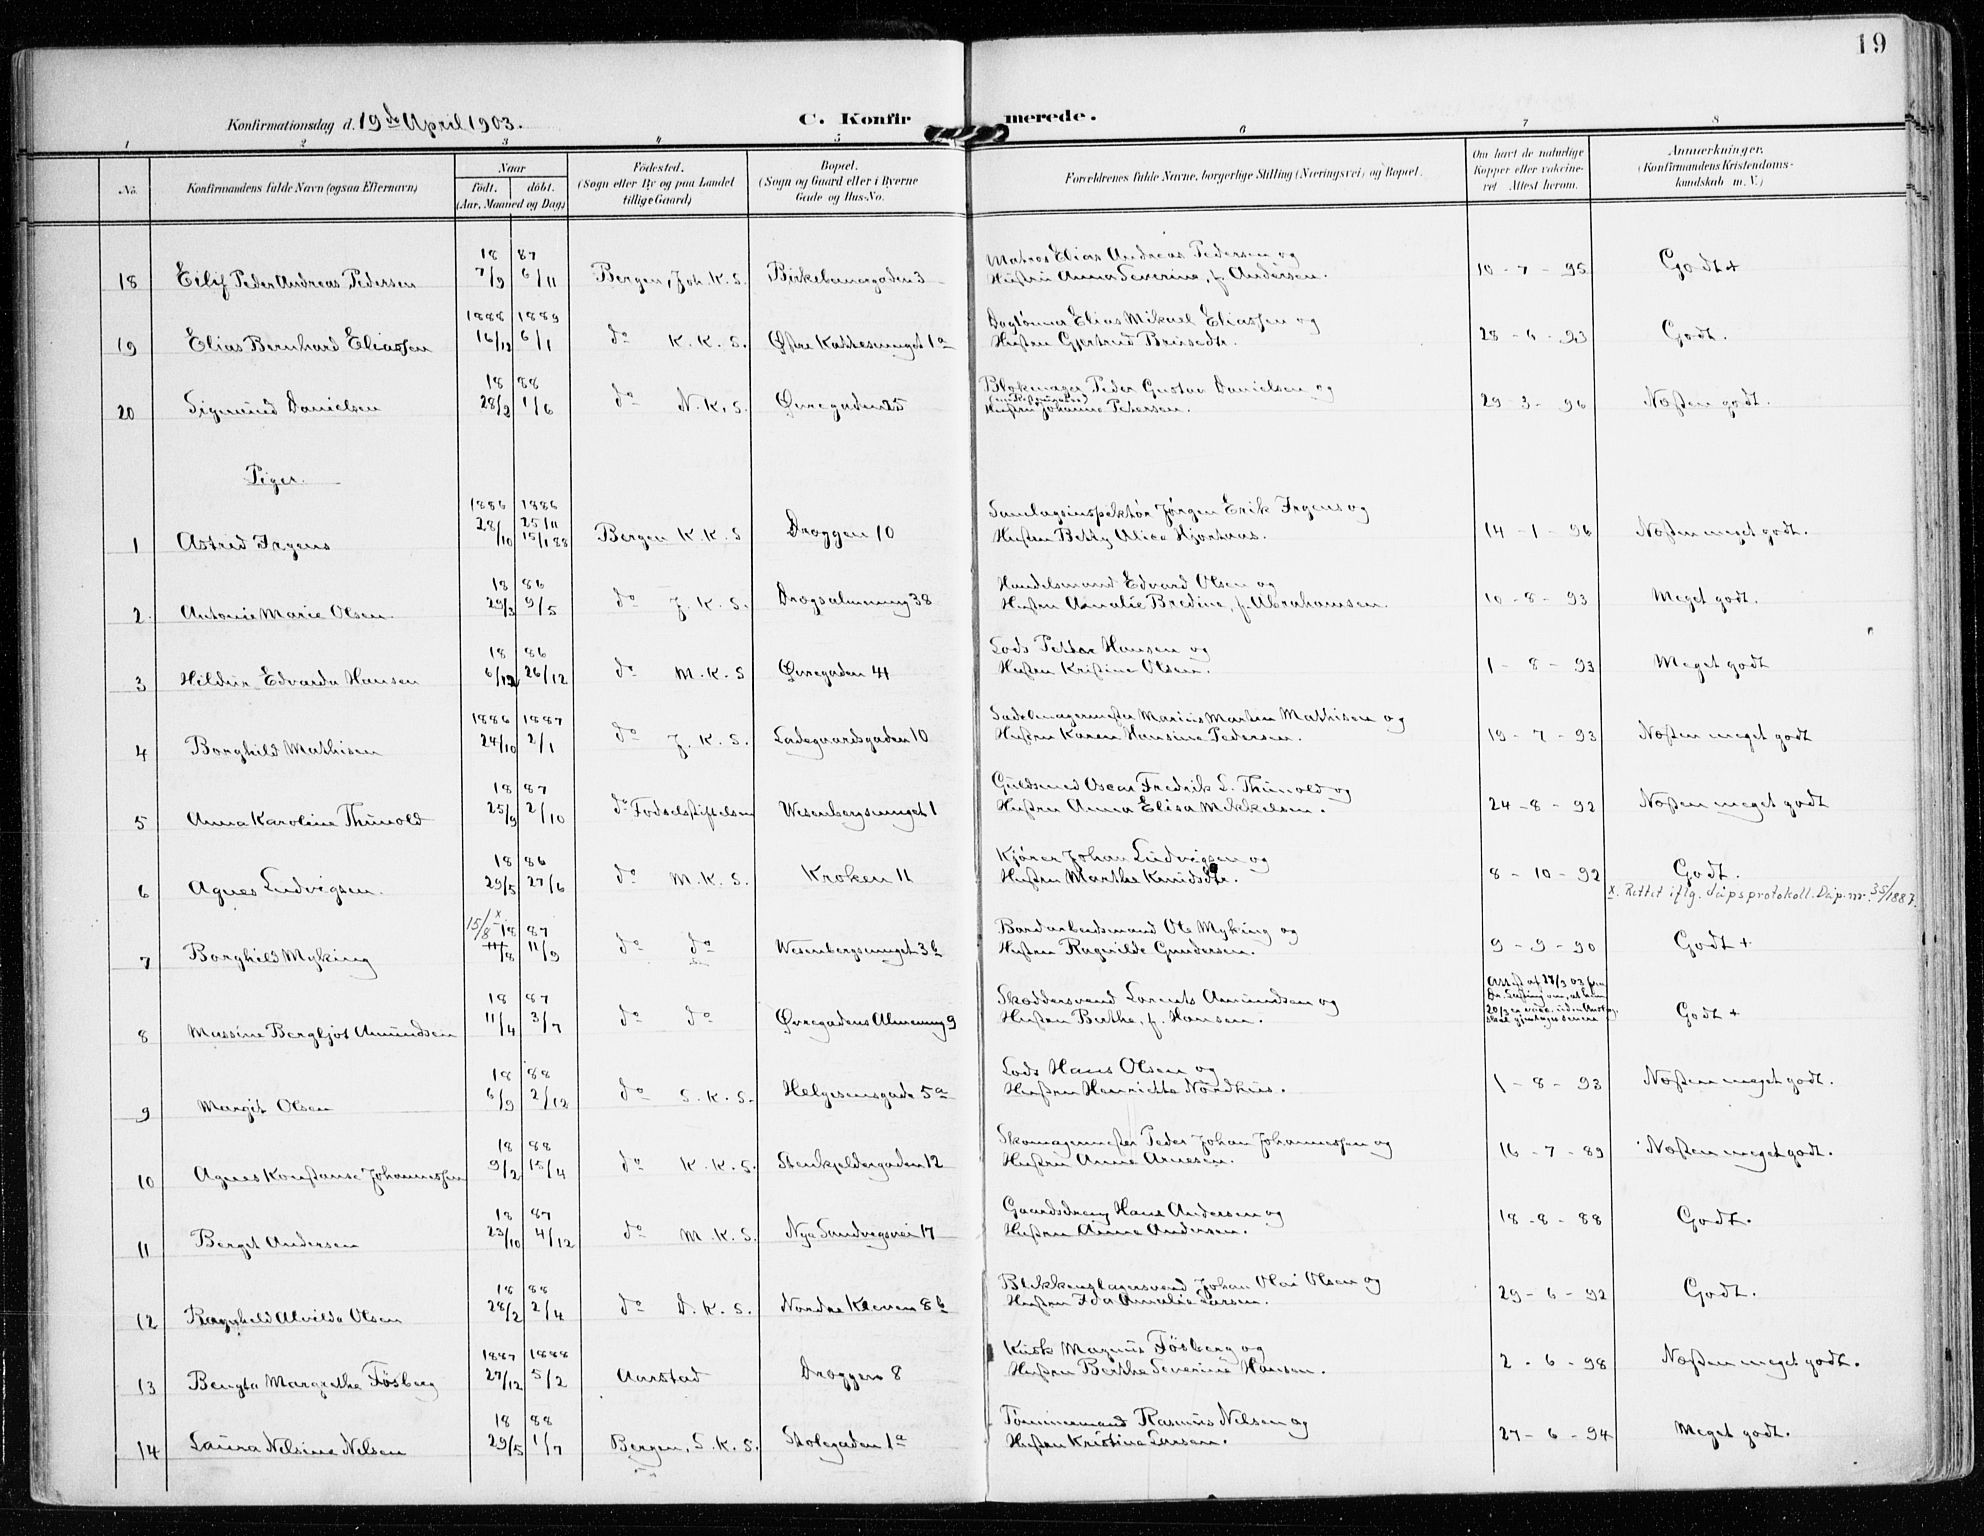 19
Konfirmationsdag d. 19de April 1903.
C. Konfirmerede.
1 2 3 4 5 6 7 8
No. Konfirmandens fulde Navn (ogsaa Efternavn) Naar født. døbt. (Aar, Maaned og Dag) Fødested. (Sogn eller By og paa Landet tillige Gaard) Bopæl. (Sogn og Gaard eller i Byerne Gade og Hus-No. Forældrenes fulde Navne, borgerlige Stilling (Næringsvei) og Bopæl. Om havt de naturlige Kopper eller vakcineret Attest herom. Anmærkninger. (Konfirmandens Kristendomskundskab m. V.)
18 87 Matros Elias Andreas Pedersen og
18 Eilif Peder Andreas Pedersen 7/9 6/11 Bergen, Joh. K. S. Birkebeinergaden 3 Hustru Anna Severine, f. Andersen. 10-7-95 Godt+
1888 1889 Daglønner Elias Mikael Eliassen og
19 Elias Bernhard Eliassen 16/12 6/1 do K. K. S. Østre Kattesmuget 1a Hustru Gjertrud Brusedtr. 28-6-93 Godt.
18 88 Blokmager Peder Gustav Danielsen og
20 Sigmund Danielsen 28/2 1/6 do N. K. S. Øvregaden 25 Hustru Johanne Petersen. 29-3-96 Næsten godt.
Piger.
1886 1886 Samlagsinspektør Jørgen Erik Irgens og
1 Astrid Irgens 28/10 25/11 15/1 88 Bergen K. K. S Dræggen 10 Hustru Betty Alice Hjortaas. 14-1-96 Næsten meget godt.
18 86 Handelsmand Edvard Olsen og
2. Antonie Marie Olsen. 29/3 9/5 do J. K. S. Drægsalmening 38 Hustru Amalie Bredine, f. Abrahamsen. 10-8-93 Meget godt.
18 86 Lods Petter Hansen og
3 Hildur Edvarda Hansen 6/12 26/12 do M. K. S Øvregaden 41 Hustru Kristine Olsen. 1-8-93 Meget godt
1886 1887 Sadelmagermester Marius Martin Mathisen og
4 Borghild Mathisen 24/10 2/1 do J. K. S. Ladegaardsgaden 10 Hustru Karen Hansine Pedersen. 19-7-93 Næsten meget godt
18 87 Guldsmed Oscar Fredrik L. Thunold og
5 Anna Karoline Thunold 25/9 2/10 do Fødselsstiftelsen Wesenbergsmuget 1 Hustru Anna Elisa Mikkelsen. 24-8-92 Næsten meget godt
18 86 Kjører Johan Ludvigsen og
6 Agnes Ludvigsen. 29/5 27/6 do M. K. S. Kroken 11 Hustru Marthe Knudsdtr. 8-10-92 Godt.
x. Rettet iflg. dåpsprotokoll. Dåp. nr. 35/1887.
15/8 x 18 87 Bordarbeidsmand Ole Myking og
7 Borghild Myking 11/8 11/9 do do Wesenbergsmuget 3b Hustru Ragnilde Gundersen. 9-9-90 Godt+
18 87 Skreddersvend Laurents Amundsen og
8 Massine Bergljot Amundsen 11/4 3/7 do do Øvregadens Almening 9 Hustru Berthe, f. Hansen. Attest af 27/3 03 fra Godt+
18 88 Lods Hans Olsen og
9 Margit Olsen 6/9 2/12 do S. K. S. Helgesensgade 5a Hustru Henriette Nordhus. 1-8-93 Næsten meget godt.
18 88 Skomagermester Peder Johan Johannessen og
10 Agnes Konstanse Johannessen 9/2 15/4 do K. K. S. Stenkjeldergaden 12 Hustru Anne Arnesen. 16-7-89 Næsten meget godt.
18 87 Gaardsdreng Hans Andersen og
11 Berget Andersen 23/10 4/12 do M. K. S. Nye Sandvigsvei 17 Hustru Anne Andersen. 18-8-88 Godt.
18 88 Blikkenslagersvend Johan Olai Olsen og
12 Ragnhild Alvilda Olsen 28/2 2/4 do D. K. S. Nordre Kleven 8b Hustru Ida Amalie Larsen. 29-6-92 Godt.
1887 1888 Kusk Magnus Fosberg og
13 Bengta Margrethe Fosberg 27/12 5/2 Aarstad Dræggen 8 Hustru Berthe Severine Hansen. 2-6-98 Næsten meget godt.
18 88 Tømmermand Rasmus Nelsen og
14 Laura Nelsine Nelsen 29/5 1/7 Bergen, S. K. S. Stølegaden 1a Hustru Kristine Larsen. 27-6-94 Meget godt.